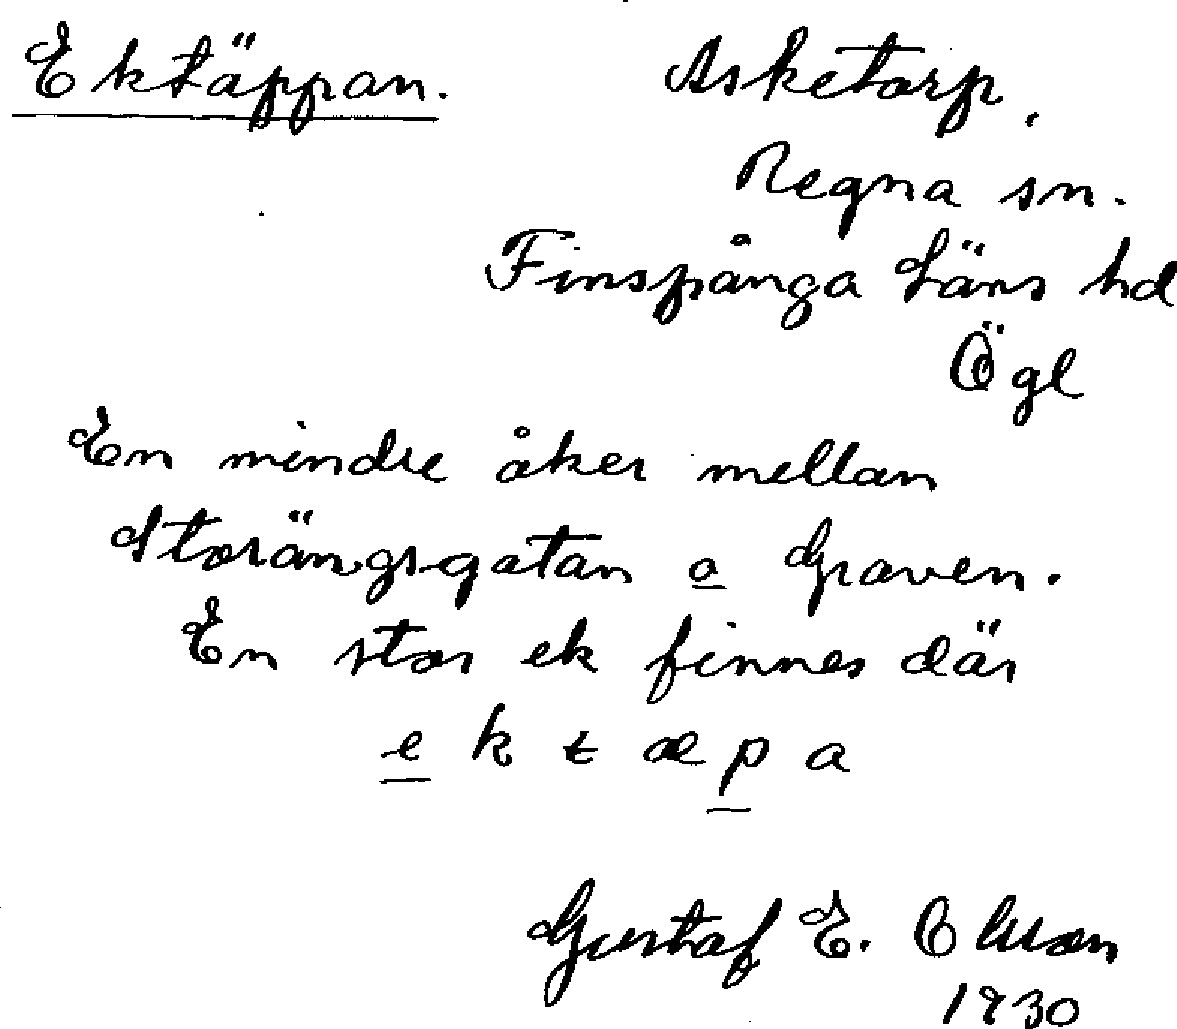 Ektäppan.
Asketorp,
Regna sn.
Finspånga läns hd
Ögl
En mindre åker mellan
Storängsgatan o Graven.
En stor ek finnes där
e k t æ p a
Gustaf E. Olsson
1930